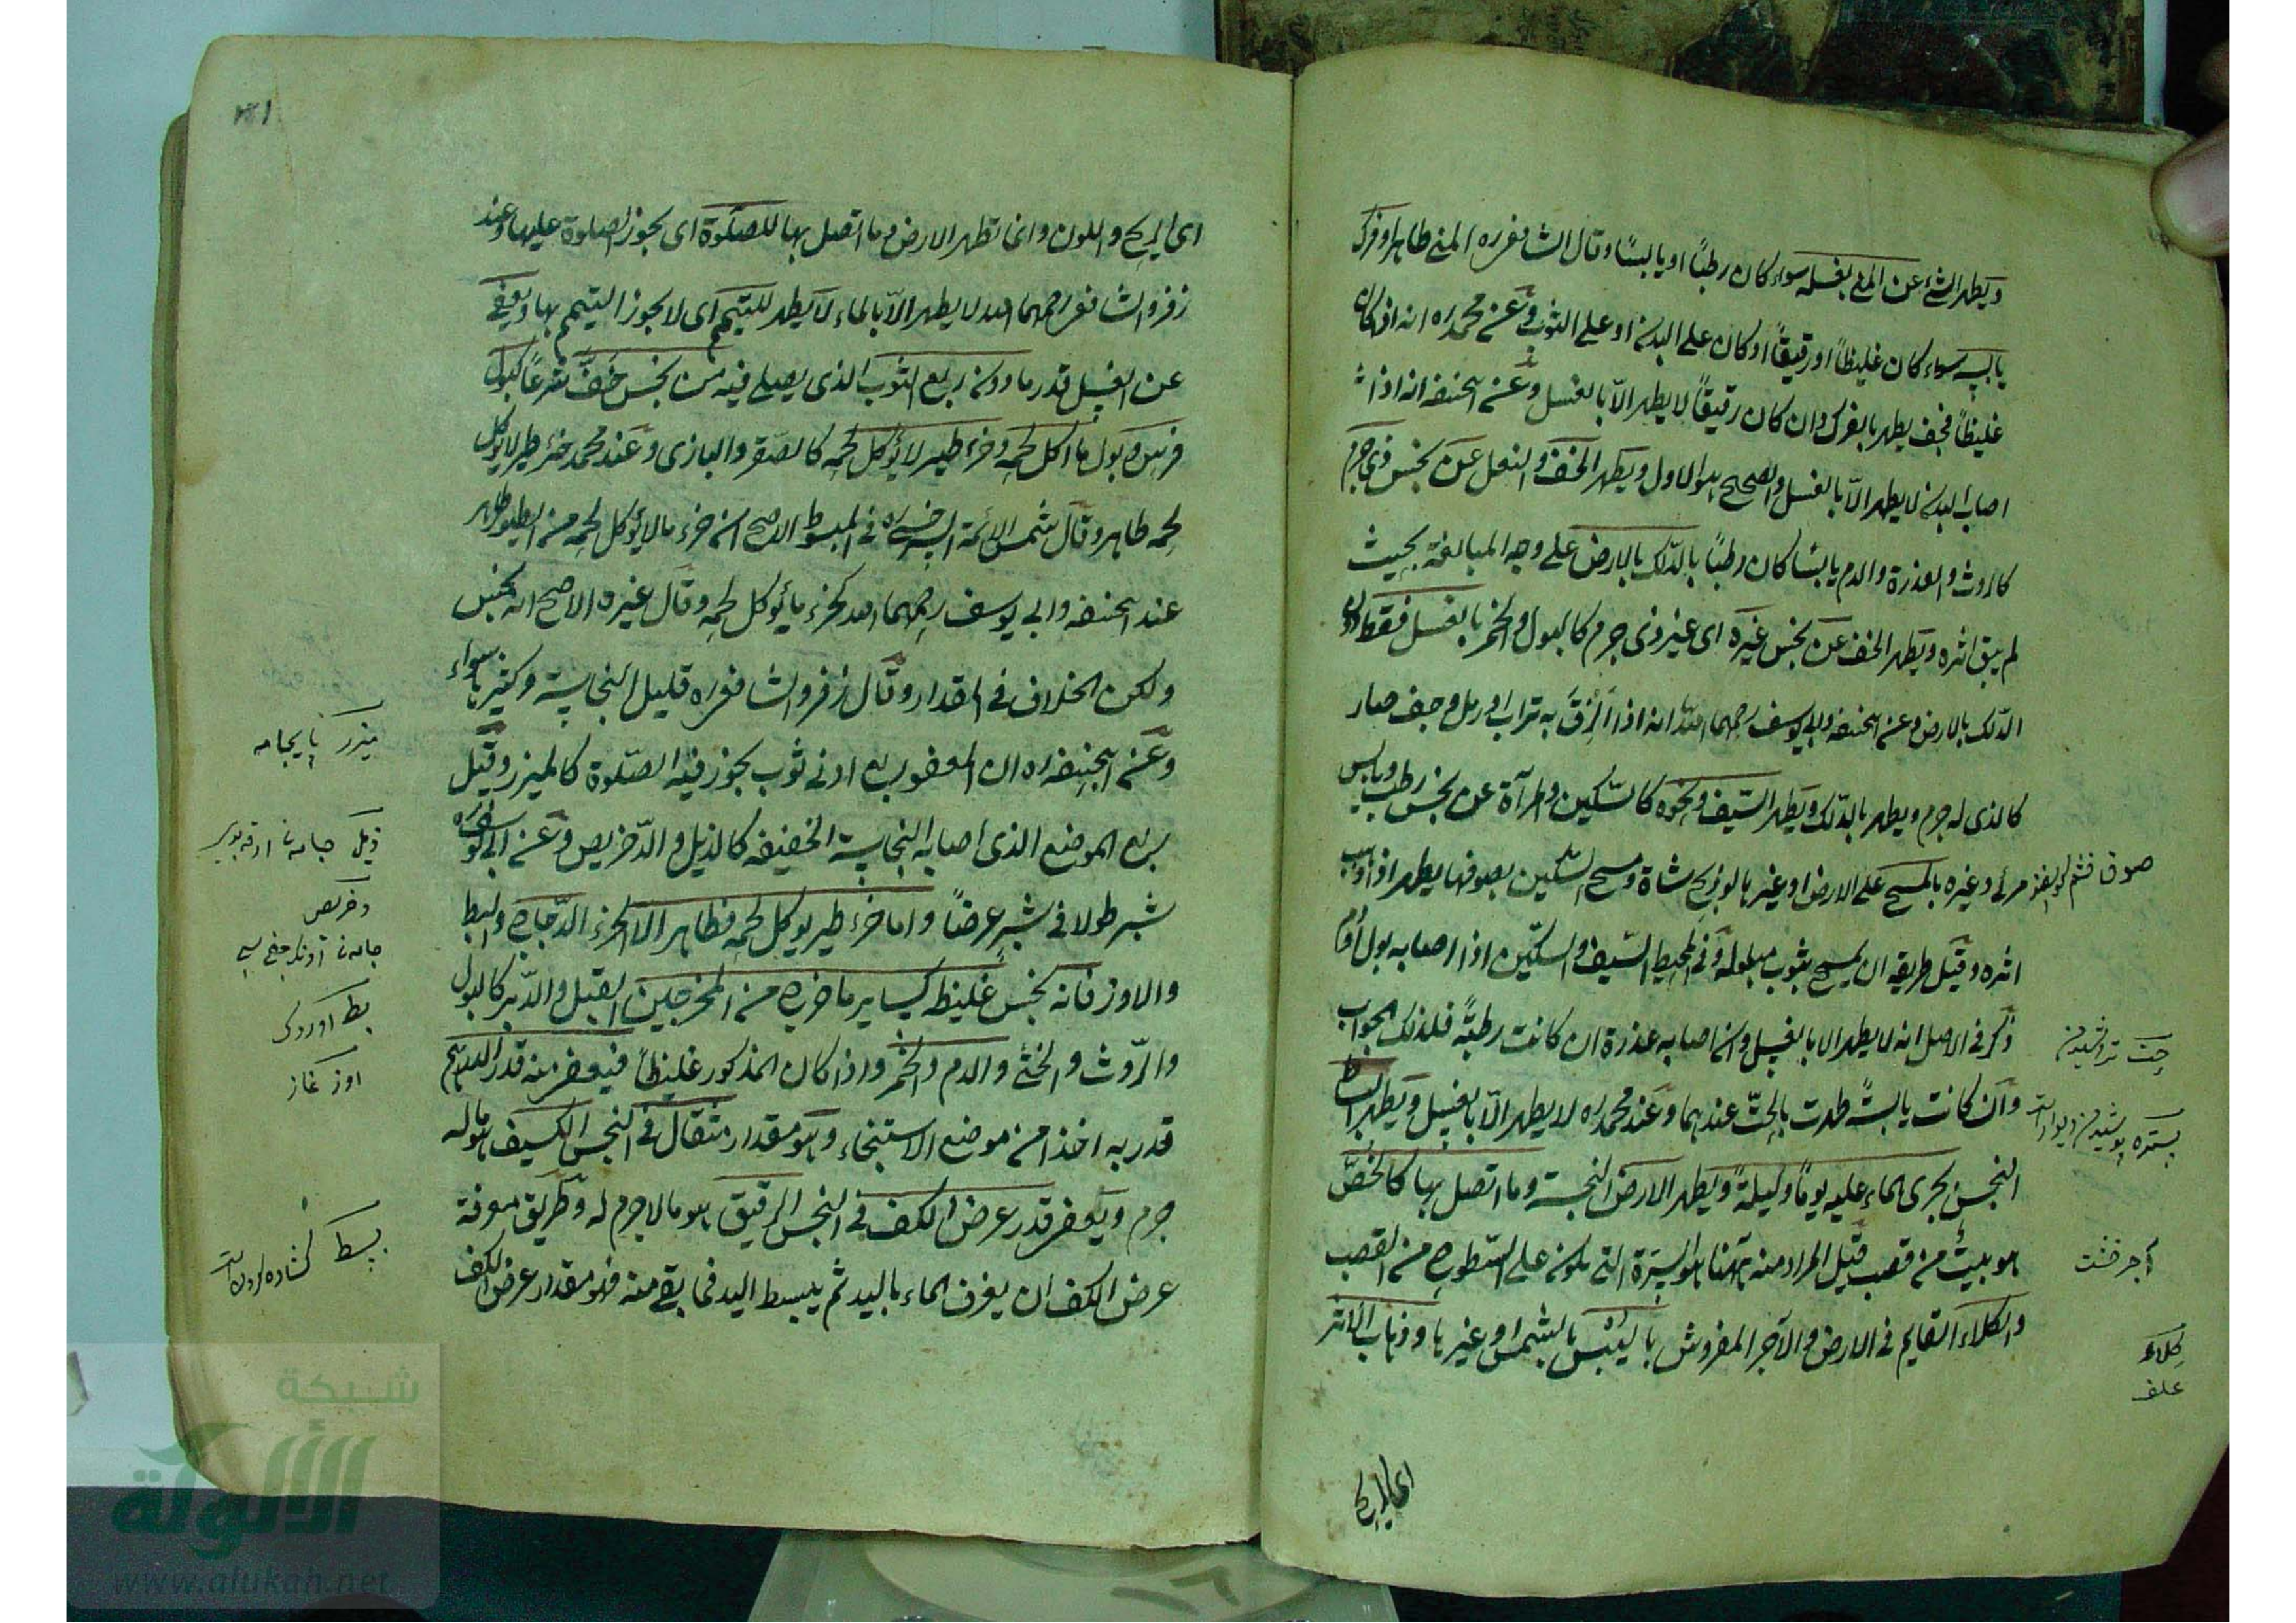 ويطهر الشئ عن المني بغسله سواء كان رطبًا او يابسًا وقال الشافعي ره المني طاهر او فرك
يابسه سواء كان غليظًا او رقيقًا او كان على البدن او على الثوب وعن محمد ره انه اذا كان
غليظًا فجف يطهر بالفرك وان كان رقيقًا لا يطهر الّا بالغسل وعن ابيحنيفه انه اذا
اصاب البدن لا يطهر الّا بالغسل والصحيح هو الاول ويطهر الخف والنعل عن نجس ذي جرم
كالروث والعذرة والدم يابسًا كان او رطبًا بالدّلك بالارض على وجه المبالغة بحيث
لم يبق اثره ويطهر الخف عن نجس غيره اى غير ذى جرم كالبول والخمر بالغسل فقط دون
الدّلك بالارض وعن ابيحنيفه وابي يوسف رحمهما الله انه اذا ألزق به تراب او رمل وجف صار
كالذى له جرم ويطهر بالدّلك ويطهر السّيف ونحوه كالسّكين والمرآة عن نجس رطب ويابس
مرئى وغيره بالمسح على الارض او غيرها لو ذبح شاة ومسح السّكين بصوفها يطهر اذا ذهب
اثره وقيل طريقه ان يمسح بثوب مبلولة وفى المحيط السّيف والسكّين اذا اصابه بول او دم
ذكر فى الاصل انه لا يطهر الا بالغسل وان اصابه عذرة ان كانت رطبة فلذلك الجواب
وان كانت يابسة طهرت بالحتّ عندهما وعند محمد ره لا يطهر الّا بالغسل ويطهر البساط
النجس بجرى الماء عليه يومًا وليلةً ويطهر الارض النجسة وما اتصل بها كالخصّ
هو بيت من قصب قيل المراد منه ههنا هو السترة التى تكون على السطوح من القصب
والكلاء القايم فى الارض والآجر المفروش باليبس بالشمس او غيرها وذهاب الاثر
صوف
حت تراشيدن
آجر خشت
كلاء
علف
اى الريح
اى الريح واللون وانما تطهر الارض وما اتصل بها للصلوة اى يجوز الصلوة عليها وعند
زفر والشافعى رحمهما الله لا يطهر الّا بالماء لا يطهر للتيمم اى لا يجوز التيمم بها ويعفى
عن الغسل قدر ما دون ربع الثوب الذى يصلى فيه من نجس خفّ شرعًا كبول
فرس وبول ما اكل لحمه وخرء طير لا يؤكل لحمه كالصّقر والبازى وعند محمد خرء طير لا يؤكل
لحمه طاهر وقال شمس الائمة السرخسى ره فى المبسوط الاصح ان خرء ما لا يؤكل لحمه من الطيور طاهر
عند ابيحنيفه وابى يوسف رحمهما الله كخرء ما يأكل لحمه وقال غيره الاصح انه نجس
ولكن الخلاف فى المقدار وقال زفر والشافعى ره قليل النجاسة وكثيرها سواء
وعن ابيحنيفه ره ان المعفو ربع ادنى ثوب يجوز فيه الصّلوة كالميزر وقيل
ربع الموضع الذى اصابه النجاسة الخفيفه كالذيل والدّخريص وعن ابى يوسف ره
شبر طولا فى شبر عرضًا واما خرء طير يوكل لحمه فطاهر الا خرء الدّجاج والبط
والاوز فانه نجس غليظ كساير ما خرج من المخرجين القبل والدّبر كالبول
والرّوث والخثى والدم والخمر واذا كان المذكور غليظًا فيعفى منه قدر الدرهم
قدر به اخذا من موضع الاستنجاء وهو مقدار مثقال فى النجس الكثيف هو ما له
جرم ويعفى قدر عرض الكف فى النجس الرقيق هو ما لا جرم له وطريق معرفة
عرض الكف ان يغرف الماء باليد ثم يبسط اليد فما بقى منه فهو مقدار عرض الكف
ميزر پايجامه
ذيل
دخريص
بط اوردك
اوز غاز
بسط
شبكة
الألوكة
www.alukah.net